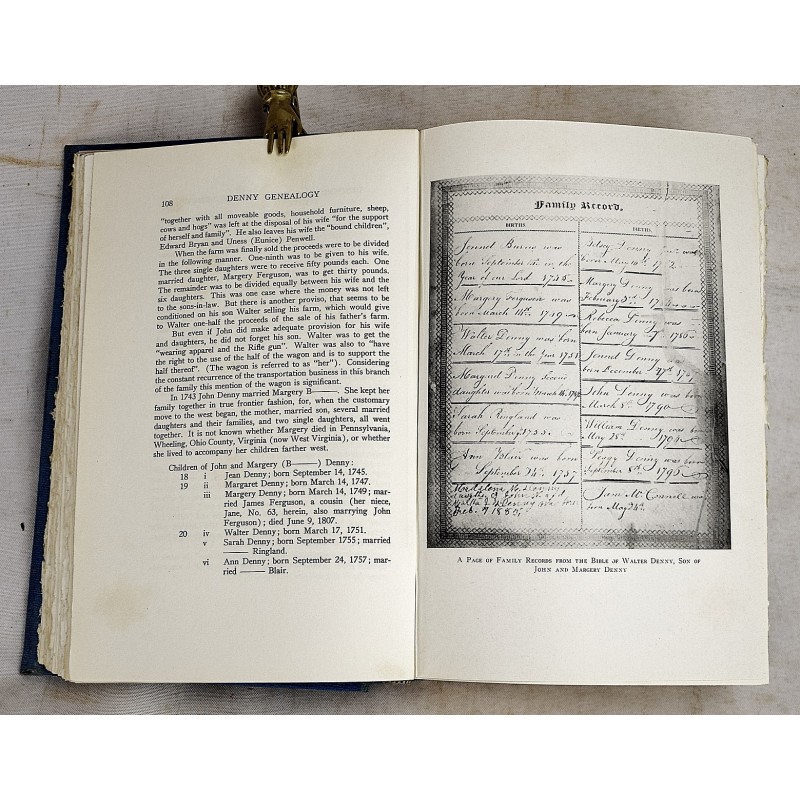 108 DENNY GENEALOGY
"together with all moveable goods, household furniture, sheep,
cows and hogs" was left at the disposal of his wife "for the support
of herself and family". He also leaves his wife the "bound children",
Edward Bryan and Uness (Eunice) Penwell.
When the farm was finally sold the proceeds were to be divided
in the following manner. One-ninth was to be given to his wife.
The three single daughters were to receive fifty pounds each. One
married daughter, Margery Ferguson, was to get thirty pounds.
The remainder was to be divided equally between his wife and the
six daughters. This was one case where the money was not left
to the sons-in-law. But there is another proviso, that seems to be
conditioned on his son Walter selling his farm, which would give
to Walter one-half the proceeds of the sale of his father's farm.
But even if John did make adequate provision for his wife
and daughters, he did not forget his son. Walter was to get the
"wearing apparel and the Rifle gun". Walter was also to "have
the right to the use of the half of the wagon and is to support the
half thereof". (The wagon is referred to as "her"). Considering
the constant recurrence of the transportation business in this branch
of the family this mention of the wagon is significant.
In 1743 John Denny married Margery B——. She kept her
family together in true frontier fashion, for, when the customary
move to the west began, the mother, married son, several married
daughters and their families, and two single daughters, all went
together. It is not known whether Margery died in Pennsylvania,
Wheeling, Ohio County, Virginia (now West Virginia), or whether
she lived to accompany her children farther west.
Children of John and Margery (B——) Denny:
18 i Jean Denny; born September 14, 1745.
19 ii Margaret Denny; born March 14, 1747.
iii Margery Denny; born March 14, 1749; mar-
ried James Ferguson, a cousin (her niece,
Jane, No. 63, herein, also marrying John
Ferguson); died June 9, 1807.
20 iv Walter Denny; born March 17, 1751.
v Sarah Denny; born September 1755; married
—— Ringland.
vi Ann Denny; born September 24, 1757; mar-
ried —— Blair.
Family Record.
BIRTHS.
Jennet Burns was
born September
Year of our Lord 1745
Margery Ferguson was
born March 14th, 1749
Walter Denny was born
March 17th in the Year 1751
Margaret Denny
daughter was born March 14,
Sarah Ringland was
born September 1755
Ann Blair was born
September 24th, 1757
BIRTHS.
Betsey Denny was
born May
Margery Denny was
born February
Rebecca Denny was
born January 7th 1786
Jennet Denny was
born December 27th
John Denny was
born March 8th 1790
William Denny was born
May 28th
Peggy Denny was born
September 8th 1796
Jane McConnell was
born May 24th
A Page of Family Records from the Bible of Walter Denny, Son of
John and Margery Denny